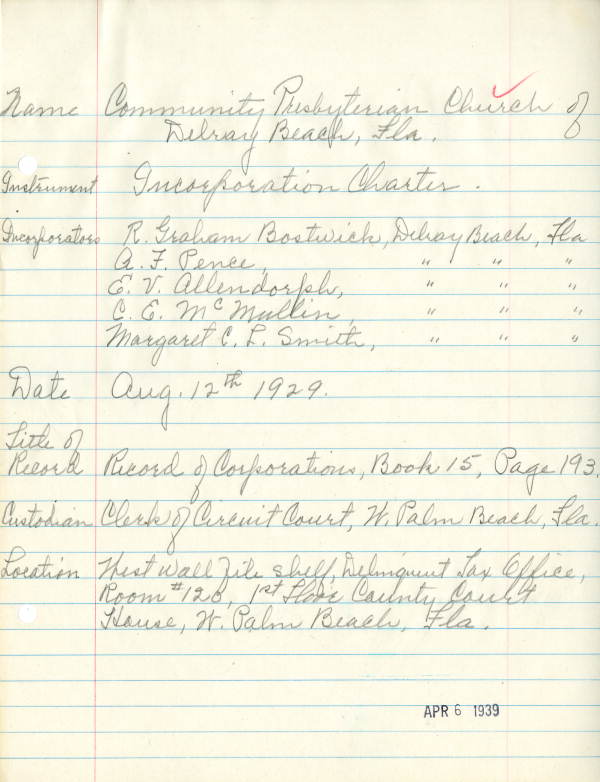 Name Community Presbyterian Church of
Delray Beach, Fla.
Instrument Incorporation Charter.
Incorporators R. Graham Bostwick, Delray Beach, Fla
A. F. Pence, " " "
E. V. Allendorph, " " "
C. E. McMullin, " " "
Margaret C. L. Smith, " " "
Date Aug. 12th 1929.
Title of
Record Record of Corporations, Book 15, Page 193.
Custodian Clerk of Circuit Court, W. Palm Beach, Fla.
Location West wall file shelf, Delinquent Tax Office,
Room #128, 1st Floor County Court
House, W. Palm Beach, Fla.
APR 6 1939